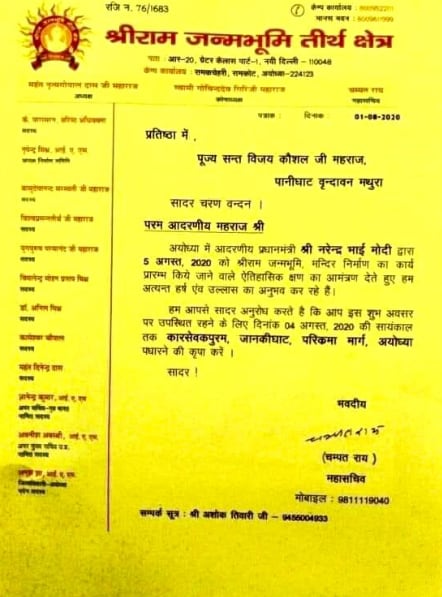 रजि न. 76/1683
कैम्प कार्यालय :
मानस भवन :
श्रीराम जन्मभूमि तीर्थ क्षेत्र
पता : आर-20, ग्रेटर कैलास पार्ट-1, नयी दिल्ली – 110048
कैम्प कार्यालय : रामकचेहरी, रामकोट, अयोध्या-224123
महंत नृत्यगोपाल दास जी महाराज
अध्यक्ष
स्वामी गोविन्ददेव गिरिजी महाराज
कोषाध्यक्ष
चम्पत राय
महासचिव
पत्रांक :
दिनांक : 01-08-2020
के. पारासरन, वरिष्ठ अधिवक्ता
सदस्य
नृपेन्द्र मिश्र, आई ए. एस
वासुदेवानन्द सरस्वती जी महाराज
सदस्य
विश्वप्रसन्नतीर्थ जी महाराज
सदस्य
युगपुरुष परमानंद जी महाराज
सदस्य
विमलेन्द्र मोहन प्रताप मिश्र
सदस्य
डॉ. अनिल मिश्र
सदस्य
कामेश्वर चौपाल
सदस्य
महंत दिनेन्द्र दास
सदस्य
ज्ञानेश कुमार, आई.ए. एस
अवनीश अवस्थी, आई. ए. एस
आई. ए. एस
प्रतिष्ठा में ,
पूज्य सन्त विजय कौशल जी महराज,
पानीघाट वृन्दावन मथुरा
सादर चरण वन्दन ।
परम आदरणीय महराज श्री
अयोध्या में आदरणीय प्रधानमंत्री श्री नरेन्द्र भाई मोदी द्वारा
5 अगस्त, 2020 को श्रीराम जन्मभूमि, मन्दिर निर्माण का कार्य
प्रारम्भ किये जाने वाले ऐतिहासिक क्षण का आमंत्रण देते हुए हम
अत्यन्त हर्ष एंव उल्लास का अनुभव कर रहे हैं।
हम आपसे सादर अनुरोध करते है कि आप इस शुभ अवसर
पर उपस्थित रहने के लिए दिनांक 04 अगस्त, 2020 की सायंकाल
तक कारसेवकपुरम, जानकीघाट, परिक्रमा मार्ग, अयोध्या
पधारने की कृपा करें ।
सादर !
भवदीय
चम्पतराय
(चम्पत राय )
महासचिव
मोबाइल : 9811119040
सम्पर्क सूत्र : श्री अशोक तिवारी जी – 9455004933